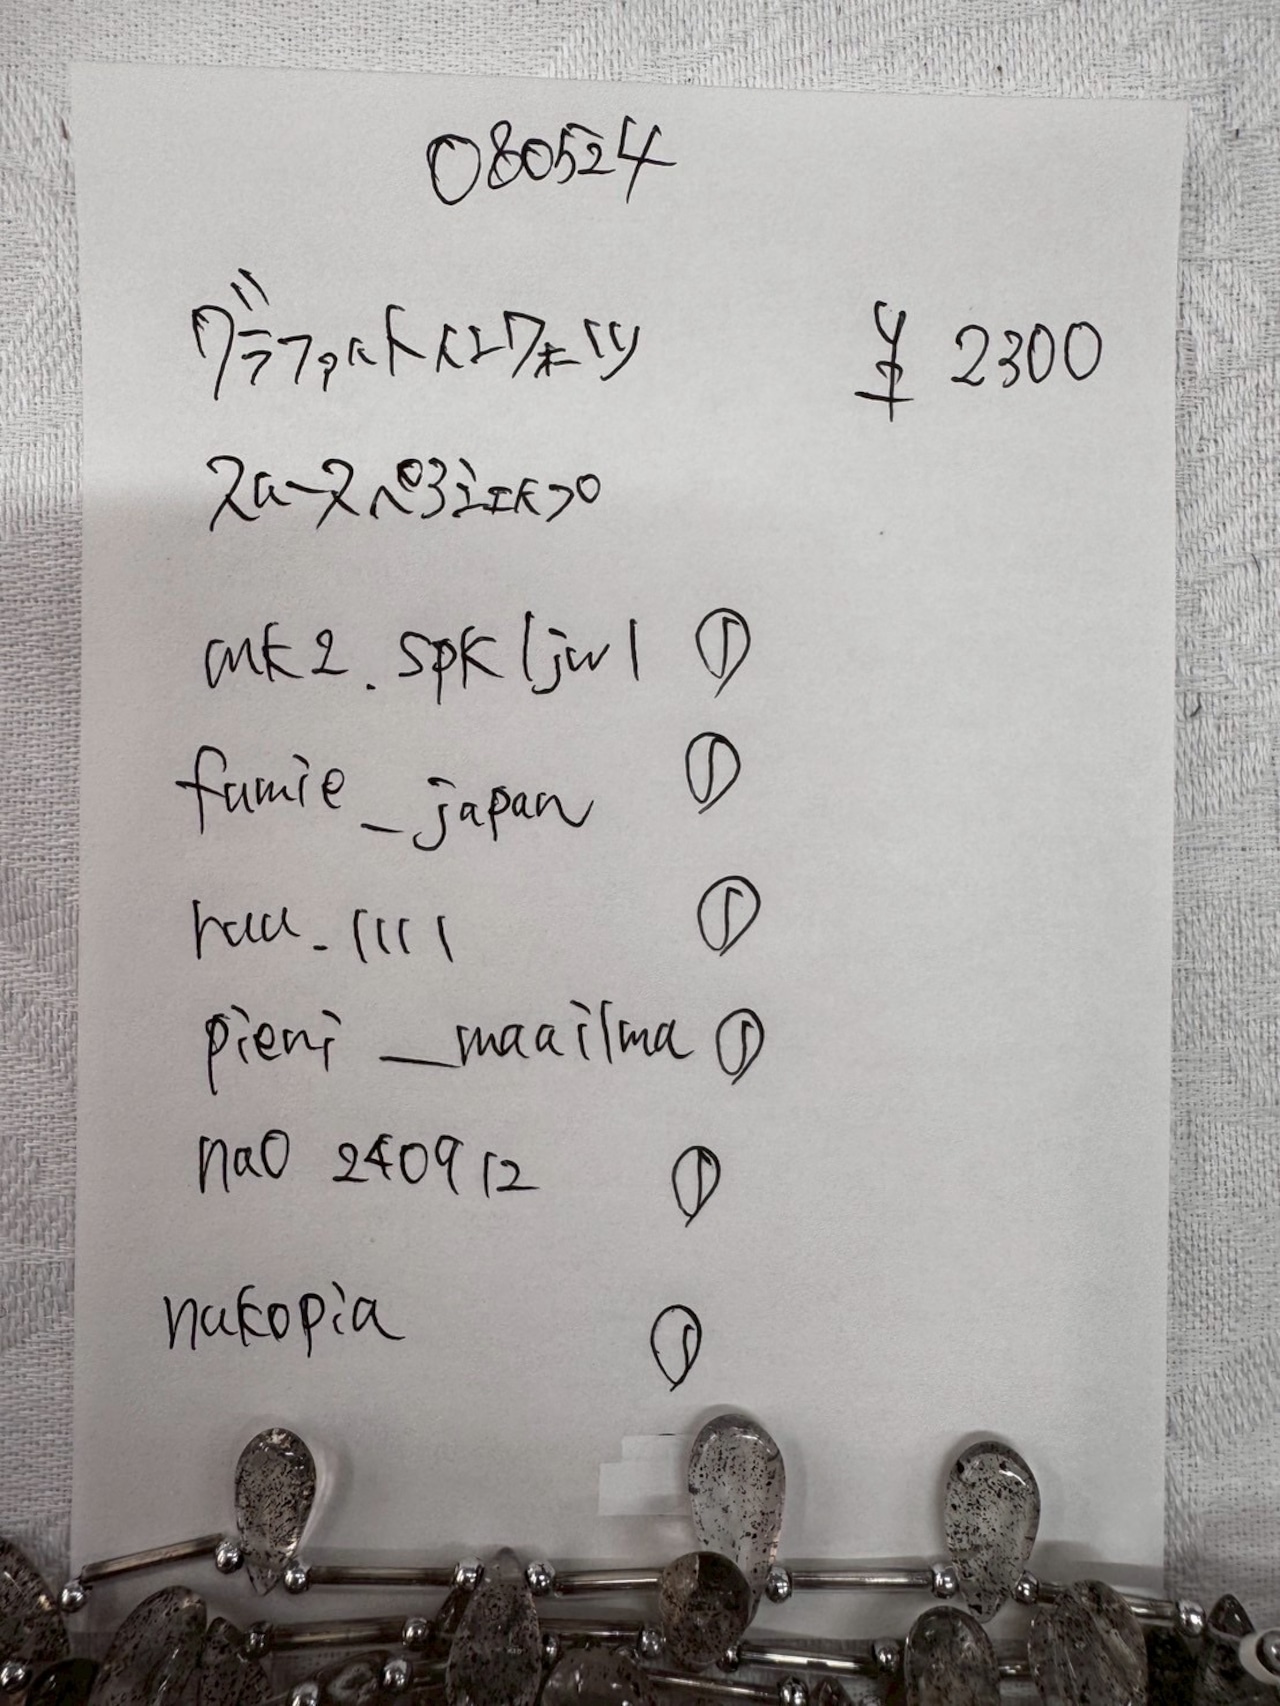 080524
グラファイトインクォーツ ¥2300
スムースペアシェイプ
mk2.spkljwl ①
fumie_japan ①
ruu_1111 ①
pieni_maailma ①
nao 240912 ①
nakopia ①